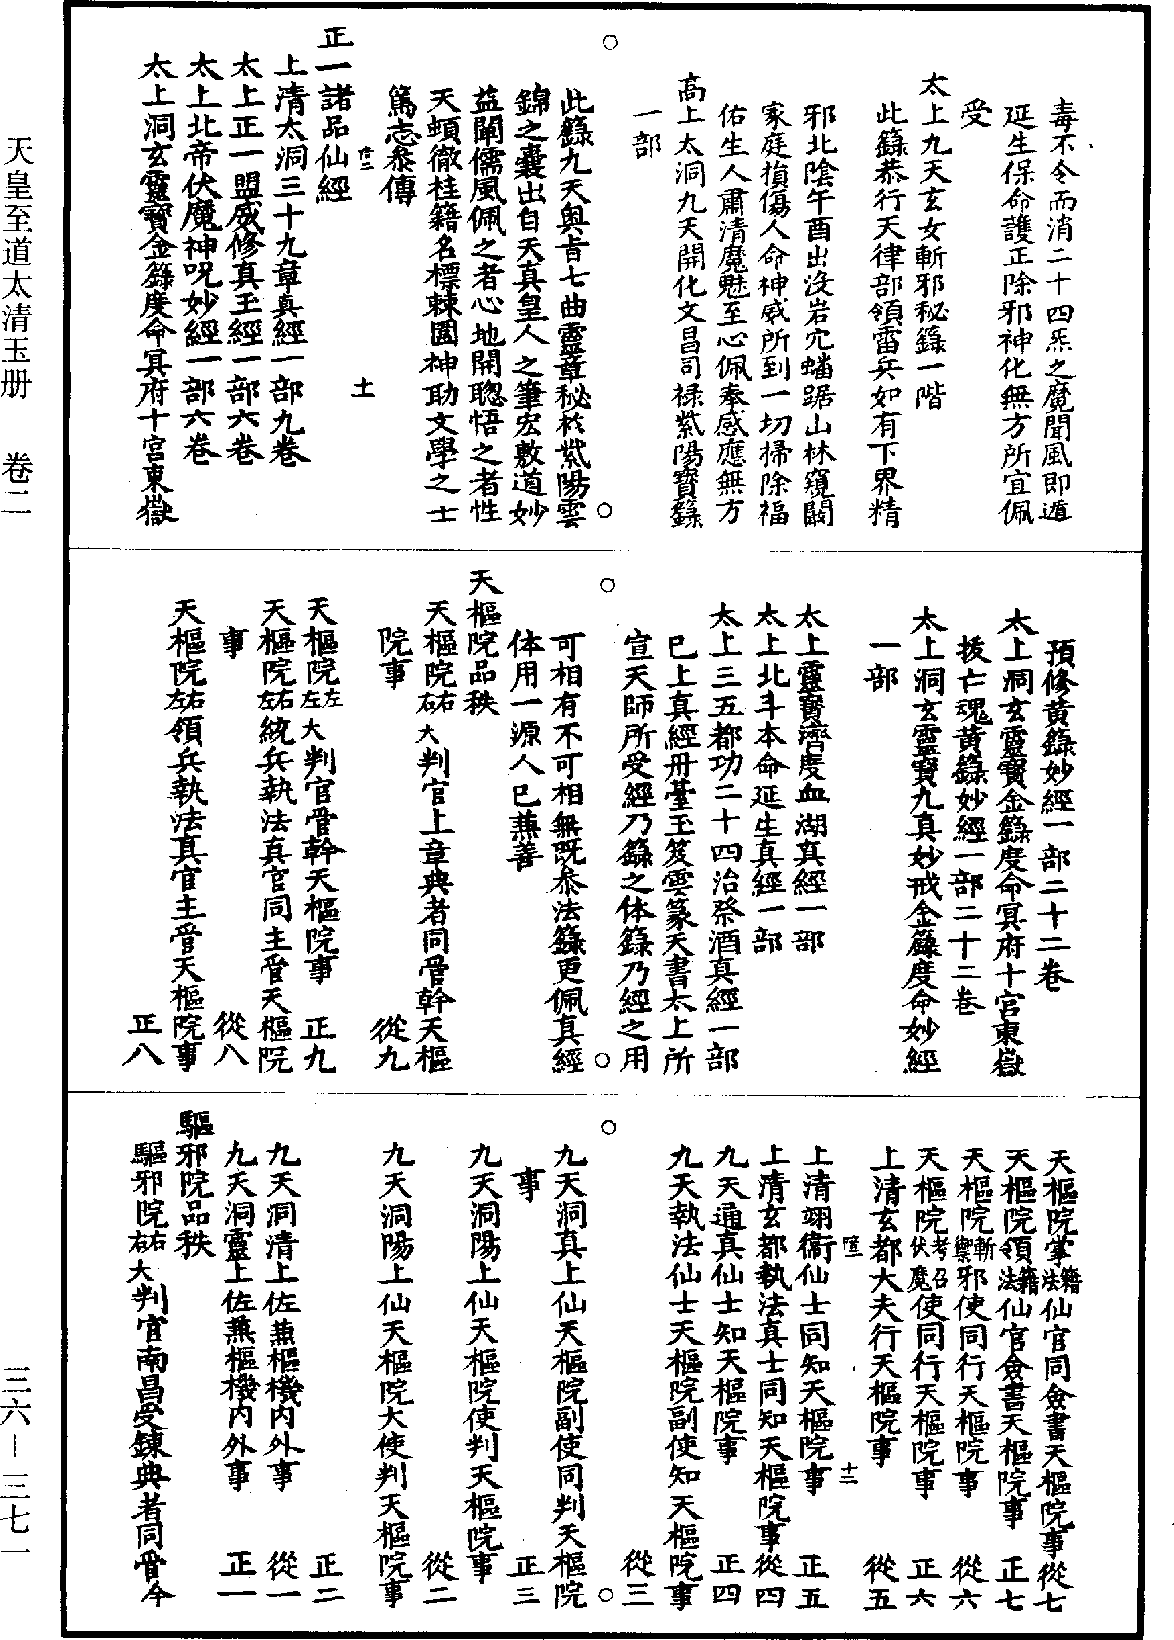 毒不令而消二十四炁之魔聞風即遁
延生保命護正除邪神化無方所宜佩
受
太上九天玄女斬邪秘籙一階
此籙恭行天律部領雷兵如有下界精
邪北陰午酉出没岩穴蟠踞山林窺闞
家庭損傷人命神威所到一切掃除福
佑生人肅清魔魅至心佩奉感應無方
高上太洞九天開化文昌司禄紫陽寶籙
一部
此籙九天奥旨七曲靈章秘於紫陽雲
錦之囊出自天真皇人之筆宏敷道妙
益闡儒風佩之者心地開聰悟之者性
天頓徹桂籍名標棘圍神助文學之士
篤志叅傳
正一諸品仙經
上清太洞三十九章真經一部九卷
太上正一盟威修真玉經一部六卷
太上北帝伏魔神呪妙經一部六卷
太上洞玄靈寶金籙度命冥府十宫東嶽
預修黄籙妙經一部二十二卷
太上洞玄靈寶金籙度命冥府十宫東嶽
拔亡魂黄籙妙經一部二十二卷
太上洞玄靈寶九真妙戒金籙度命妙經
一部
太上靈寶濟度血湖真經一部
太上北斗本命延生真經一部
太上三五都功二十四治祭酒真經一部
已上真經丹臺玉笈雲篆天書太上所
宣天師所受經乃籙之体籙乃經之用
可相有不可相無既叅法籙更佩真經
体用一源人已蕪善
天樞院品秩
天樞院右右大判官上章典者同管幹天樞
院事 從九
天樞院左左大判官管幹天樞院事 正九
天樞院右左統兵執法真官同主管天樞院
事 從八
天樞院右左領兵執法真官主管天樞院事
正八
天樞院掌籍法仙官同僉書天樞院事從七
天樞院領籍法仙官僉書天樞院事 正七
天樞院斬禦邪使同行天樞院事 從六
天樞院考召伏魔使同行天樞院事 正六
上清玄都大夫行天樞院事 從五
上清翊衞仙士同知天樞院事 正五
上清玄都執法真士同知天樞院事從四
九天通真仙士知天樞院事 正四
九天執法仙士天樞院副使知天樞院事
從三
九天洞真上仙天樞院副使同判天樞院
事 正三
九天洞陽上仙天樞院使判天樞院事
從二
九天洞陽上仙天樞院大使判天樞院事
正二
九天洞清上佐蕪樞機内外事 從一
九天洞靈上佐蕪樞機内外事 正一
驅邪院品秩
驅邪院右右大判官南昌受鍊典者同管今
天皇至道太清玉册 卷二
三六—三七一